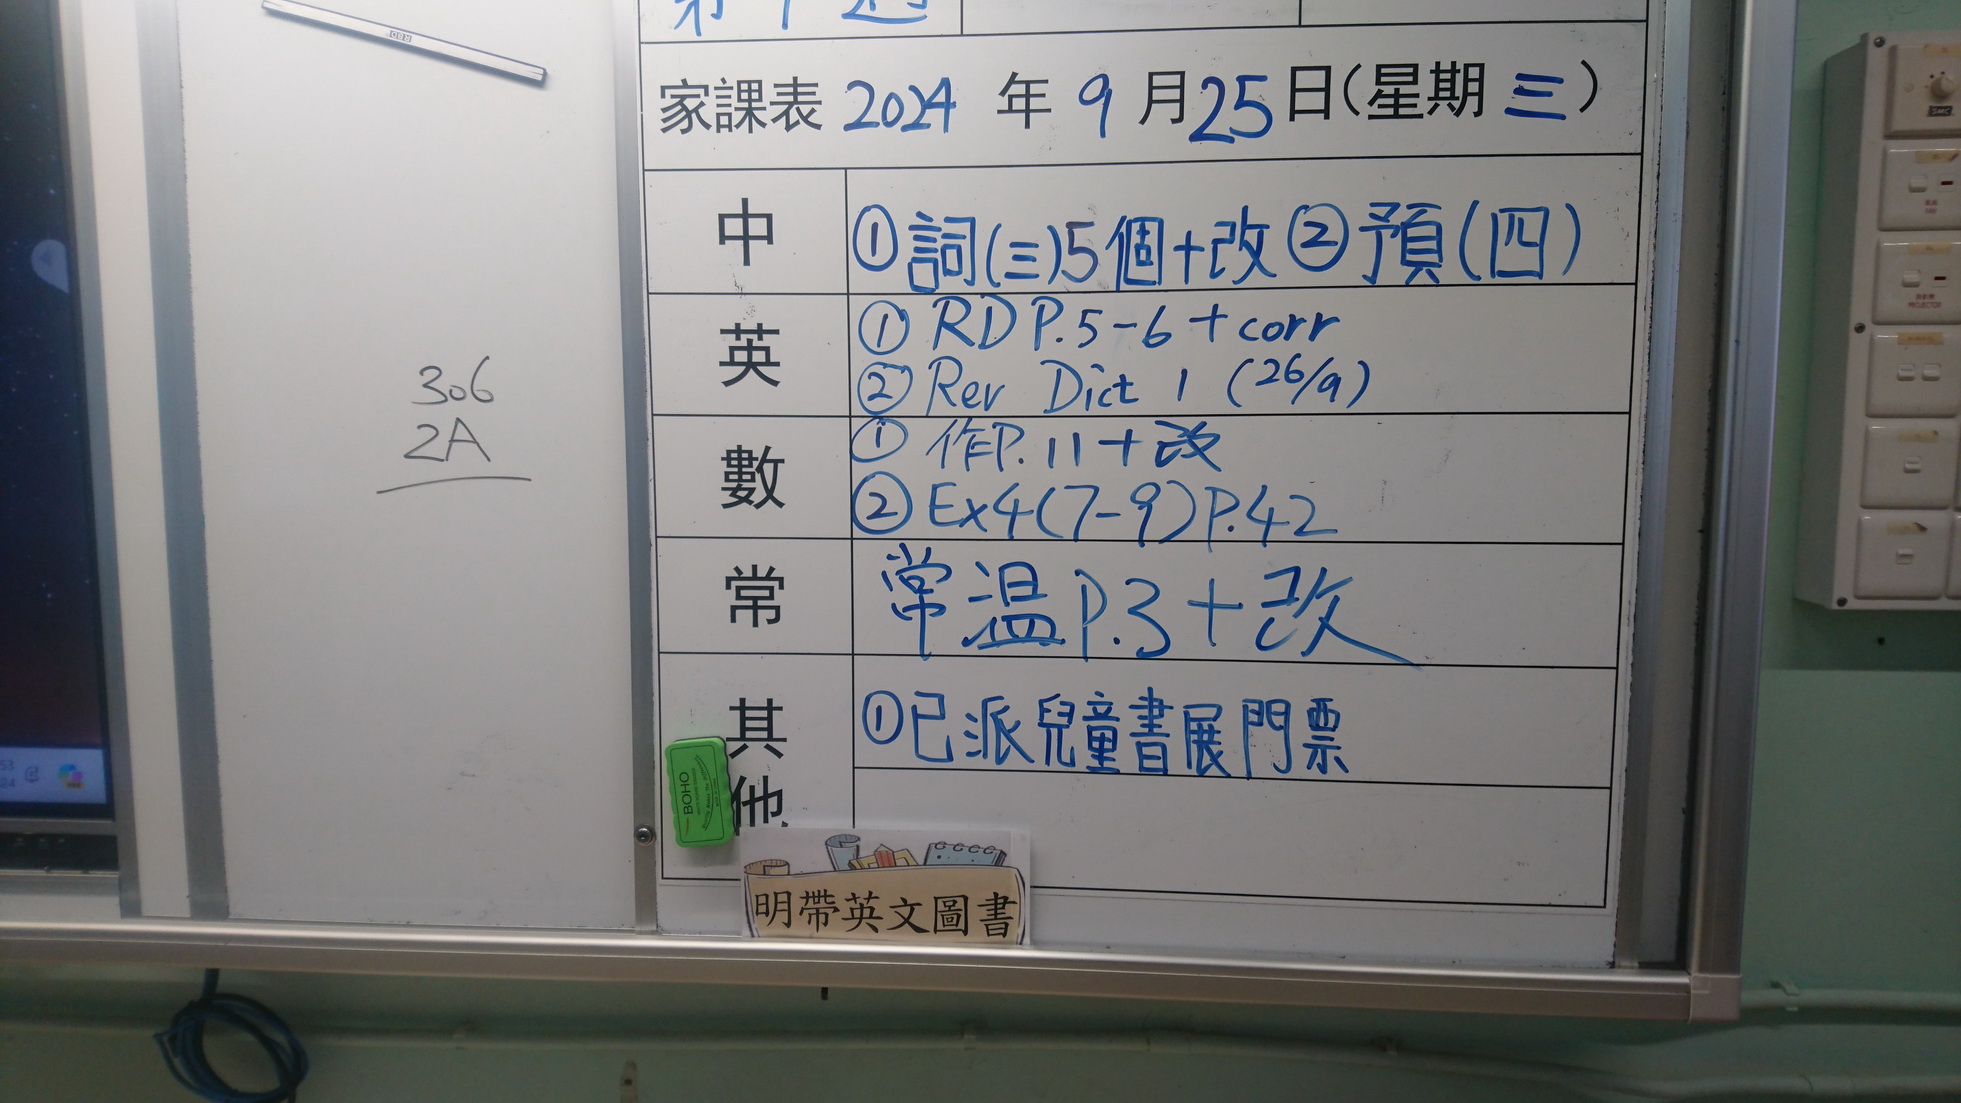 家課表 2024 年 9 月 25 日(星期 三)
中 ①詞(三)5個+改 ②預(四)
英 ① RD P.5-6 + corr
② Rev Dict 1 (26/9)
數 ① 作P.11+改
② Ex4(7-9)P.42
常 常溫P.3+改
其他 ①已派兒童書展門票
明帶英文圖書
306
2A
BOHO